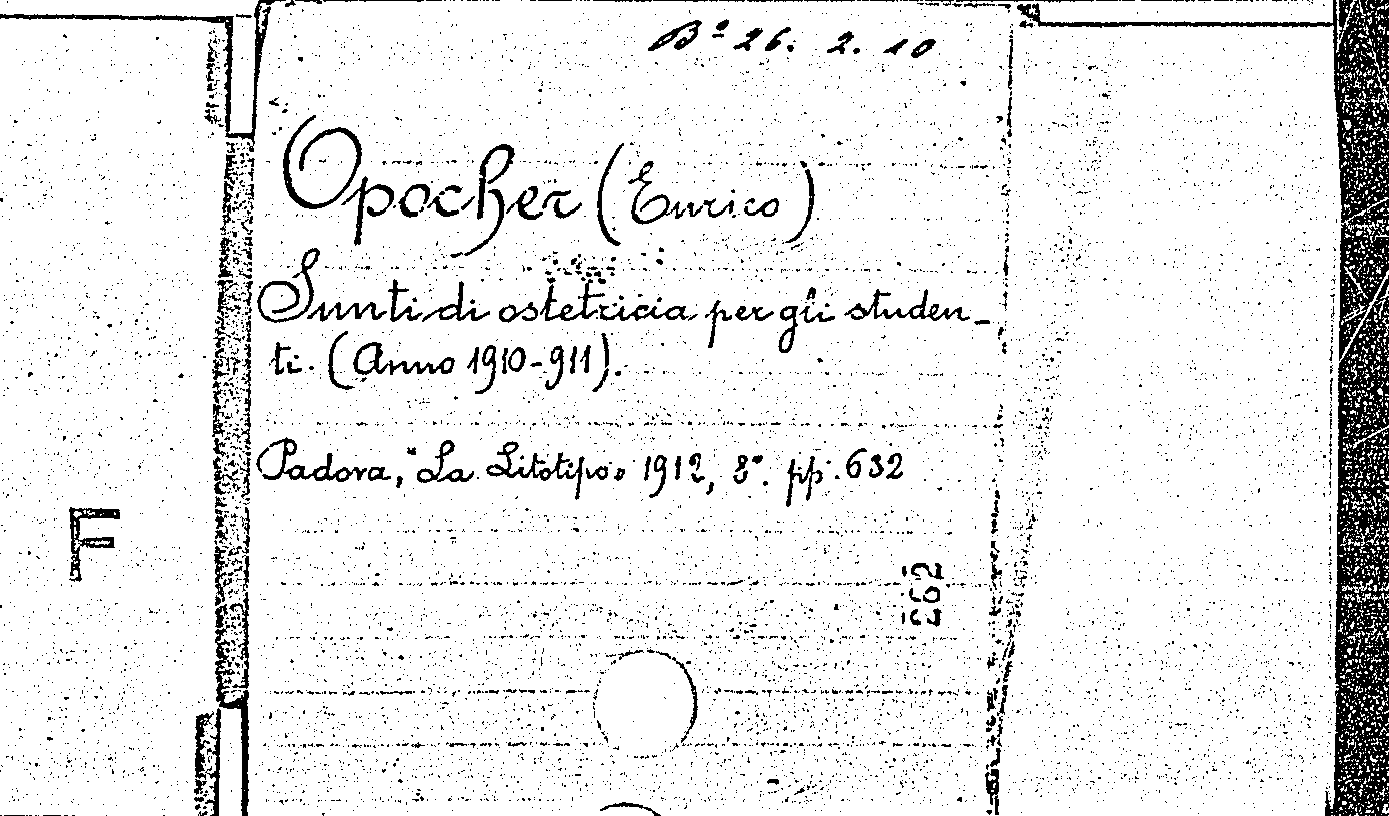 Bª 26. 2. 10
Opocher (Enrico)
Sunti di ostetricia per gli studen-
ti. (Anno 1910-911).
Padova, "La Litotipo" 1912, 8°. pp. 632
F
262